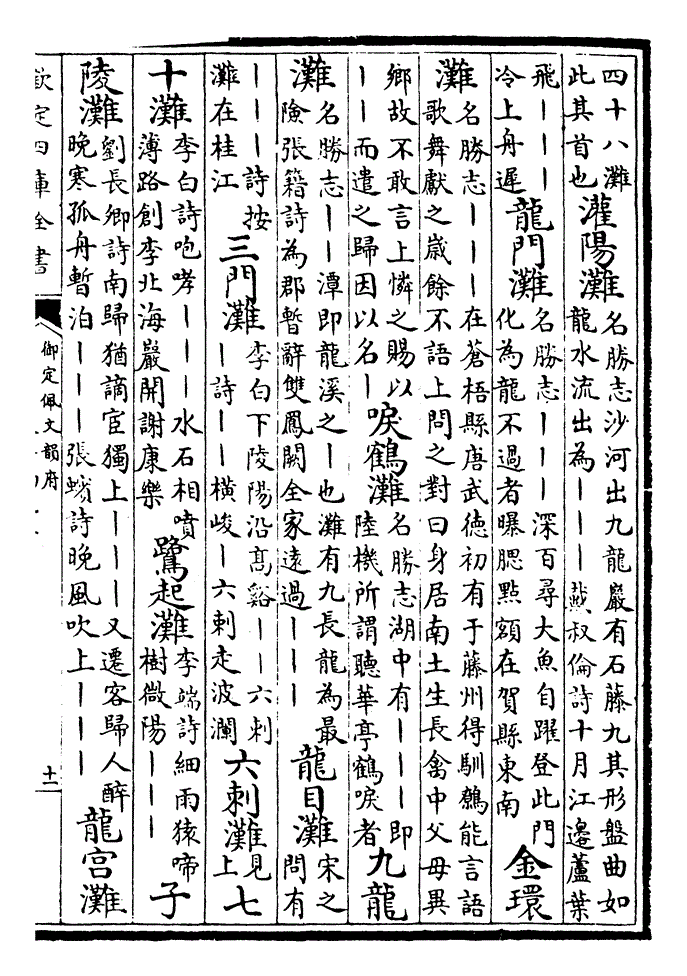 四十八灘此其首也灌陽灘名勝志沙河出九龍巖有石藤九其形盤曲如龍水流出為｜｜｜戴叔倫詩十月江邊蘆葉
飛｜｜｜冷上舟遲龍門灘名勝志｜｜｜深百尋大魚自躍登此門化為龍不過者曝腮點額在賀縣東南金環
灘名勝志｜｜｜在蒼梧縣唐武德初有于藤州得馴鷯能言語歌舞獻之嵗餘不語上問之對曰身居南土生長禽中父母異
鄉故不敢言上憐之賜以｜｜而遣之歸因以名｜唳鶴灘名勝志湖中有｜｜｜即陸機所謂聽華亭鶴唳者九龍
灘名勝志｜｜潭即龍溪之｜也灘有九長龍為最險張籍詩為郡暫辭雙鳳闕全家遠過｜｜｜龍目灘宋之問有
｜｜｜詩按灘在桂江三門灘李白下陵陽沿高谿｜｜六刺｜詩｜｜橫峻｜六刺走波瀾六刺灘見上七
十灘李白詩咆哮｜｜｜水石相噴薄路創李北海巖開謝康樂鷺起灘李端詩細雨猿啼樹微陽｜｜｜子
陵灘劉長卿詩南歸猶謫宦獨上｜｜｜又遷客歸人醉晚寒孤舟暫泊｜｜｜張蠙詩晚風吹上｜｜｜龍宮灘
欽定四庫全書
御定佩文韻府
十一